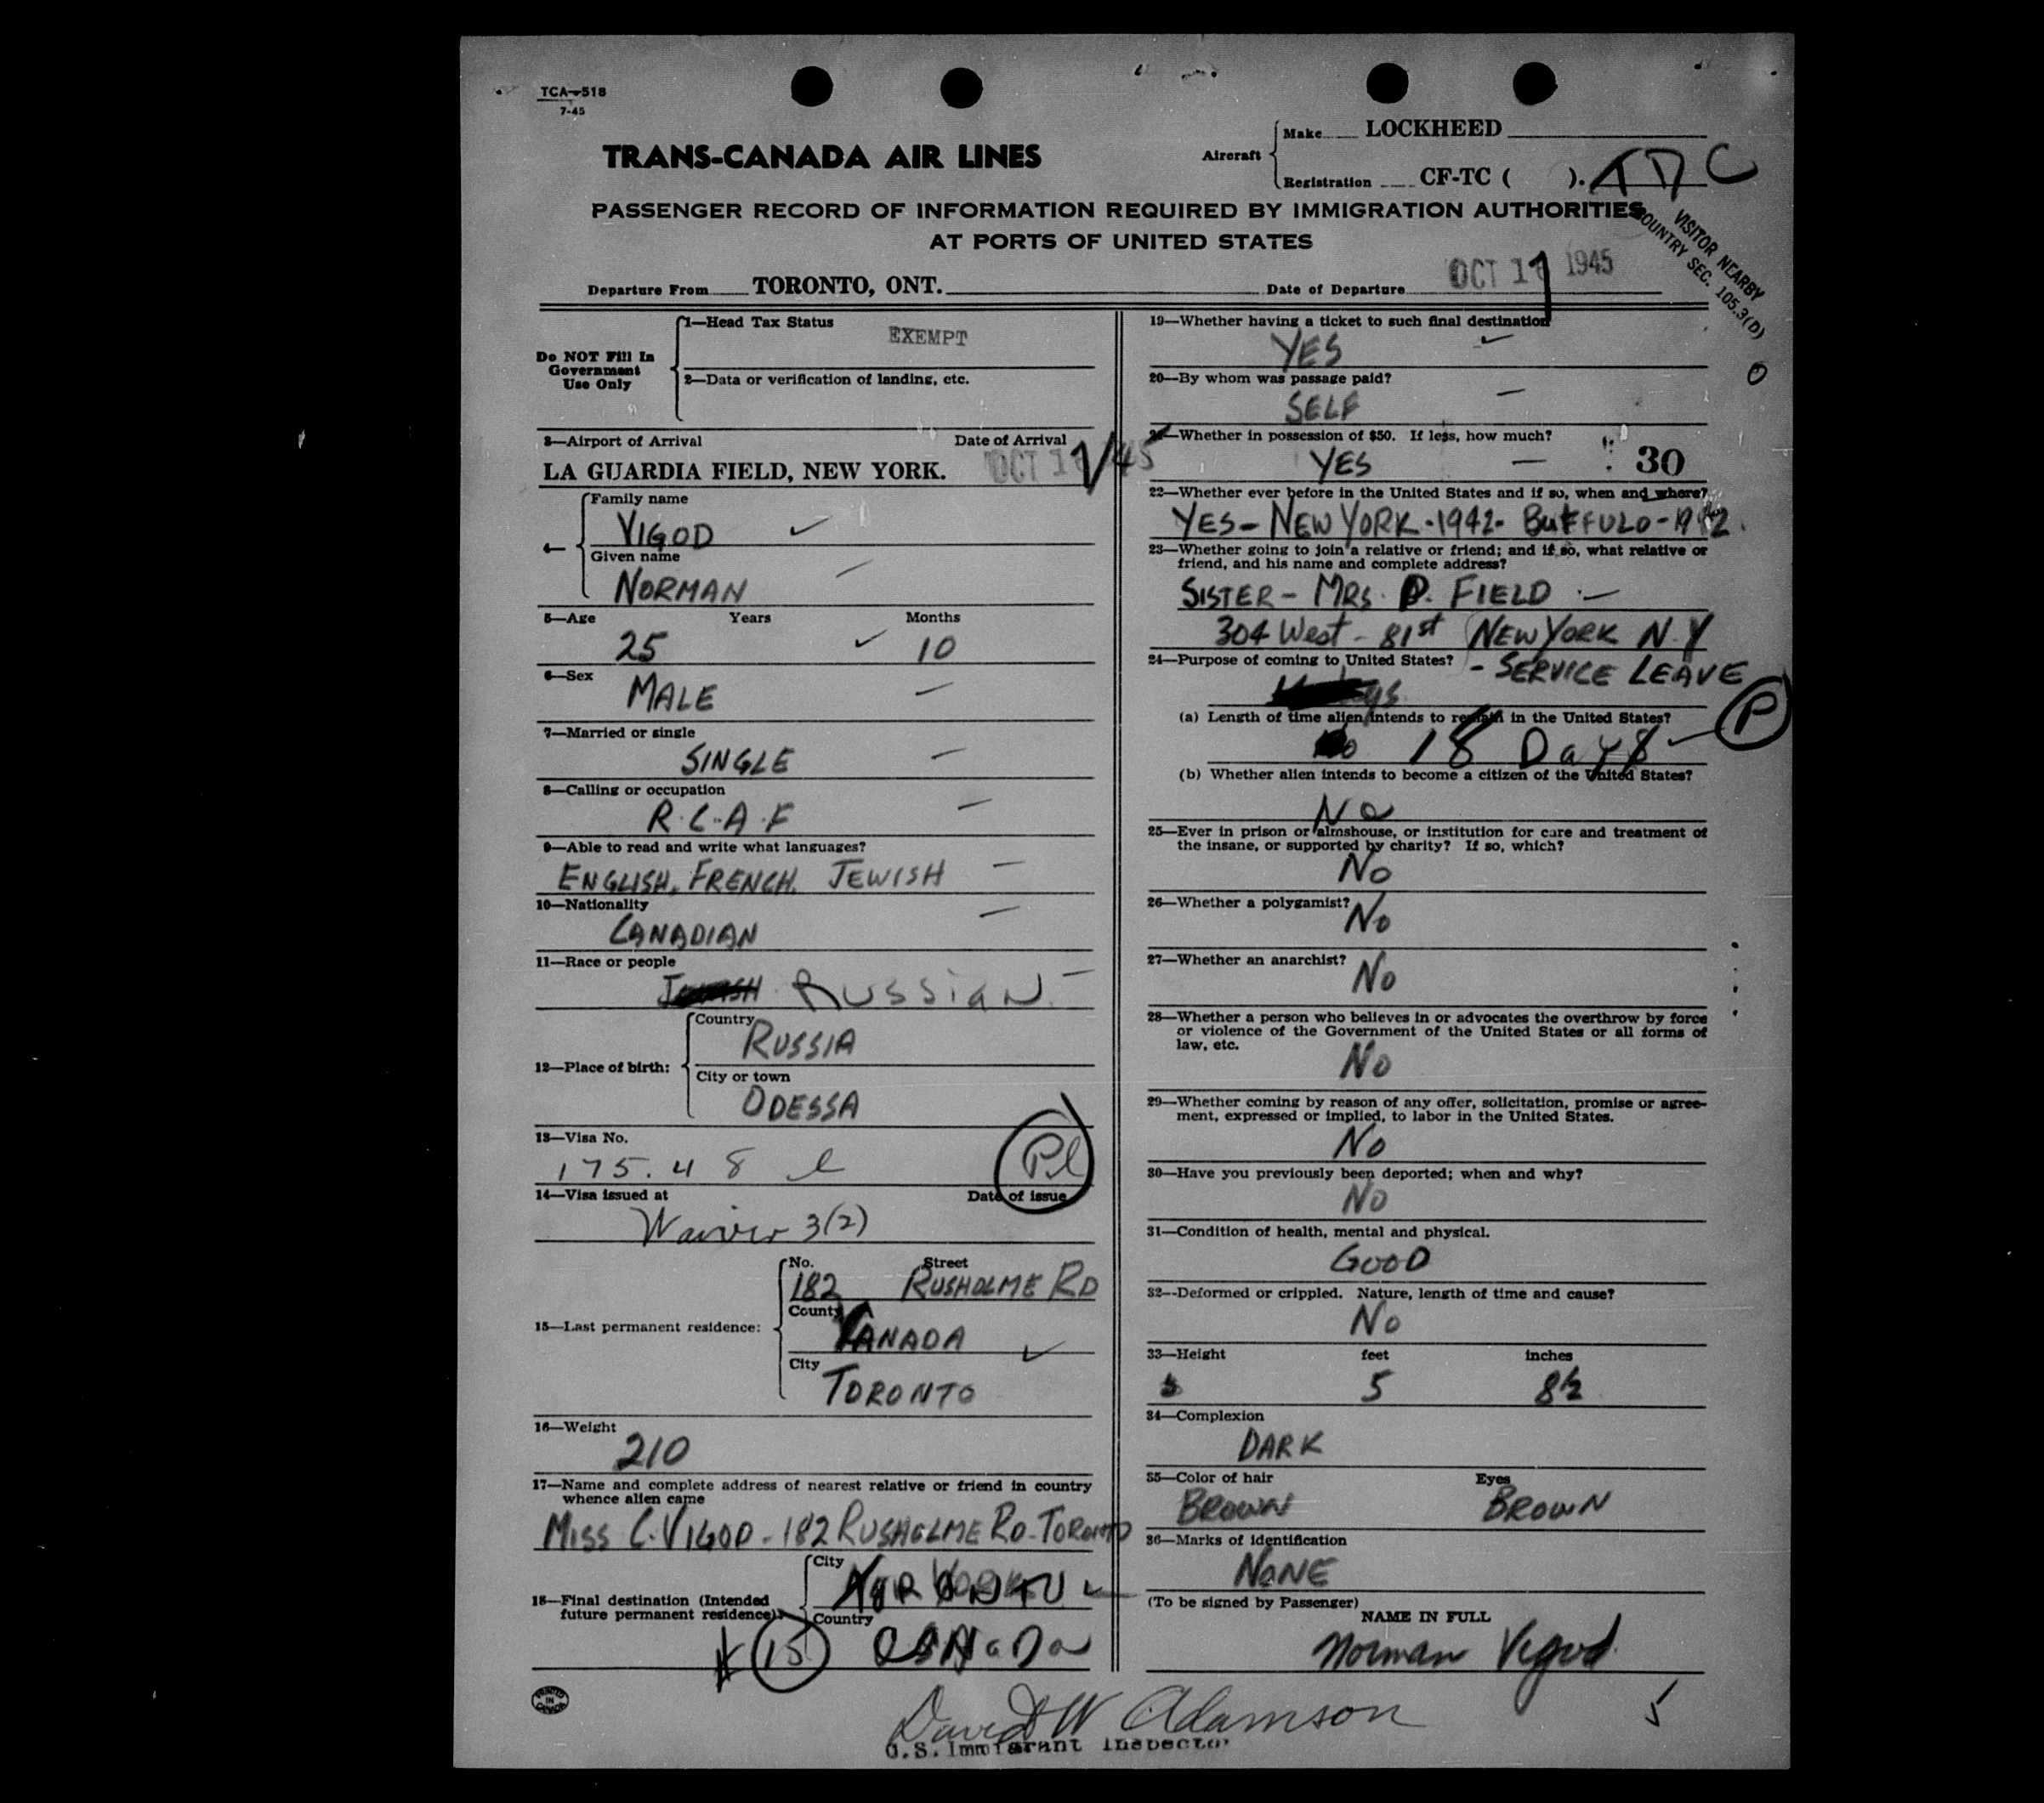 TCA-518
7-45
TRANS-CANADA AIR LINES
Aircraft
Make LOCKHEED
Registration CF-TC ( ).
PASSENGER RECORD OF INFORMATION REQUIRED BY IMMIGRATION AUTHORITIES
AT PORTS OF UNITED STATES
VISITOR NEARBY
COUNTRY SEC. 105.3(D)
Departure From TORONTO, ONT. Date of Departure OCT 1 1945
Do NOT Fill In
Government
Use Only
1—Head Tax Status
EXEMPT
2—Data or verification of landing, etc.
3—Airport of Arrival Date of Arrival
LA GUARDIA FIELD, NEW YORK. OCT 1 /45
4—
Family name
VIGOD
Given name
NORMAN
5—Age Years Months
25 10
6—Sex
MALE
7—Married or single
SINGLE
8—Calling or occupation
R.C.A.F
9—Able to read and write what languages?
ENGLISH, FRENCH, JEWISH
10—Nationality
CANADIAN
11—Race or people
JEWISH RUSSIAN
12—Place of birth:
Country
RUSSIA
City or town
ODESSA
13—Visa No.
175.48 Pl
14—Visa issued at Date of issue
Waiver 3(2)
15—Last permanent residence:
No. Street
182 RUSHOLME RD
County
CANADA
City
TORONTO
16—Weight
210
17—Name and complete address of nearest relative or friend in country
whence alien came
MISS C. VIGOD - 182 RUSHOLME RD - TORONTO
18—Final destination (Intended
future permanent residence)
City
TORONTO
Country
CANADA
15
PRINTED
IN
CANADA
19—Whether having a ticket to such final destination
YES
20—By whom was passage paid?
SELF
21—Whether in possession of $50. If less, how much?
YES 30
22—Whether ever before in the United States and if so, when and where?
YES - NEW YORK - 1942 - BUFFULO - 1942.
23—Whether going to join a relative or friend; and if so, what relative or
friend, and his name and complete address?
SISTER - MRS. D. FIELD
304 West - 81st NEW YORK N.Y
24—Purpose of coming to United States? - SERVICE LEAVE
(a) Length of time alien intends to remain in the United States?
18 Days P
(b) Whether alien intends to become a citizen of the United States?
No
25—Ever in prison or almshouse, or institution for care and treatment of
the insane, or supported by charity? If so, which?
No
26—Whether a polygamist?
No
27—Whether an anarchist?
No
28—Whether a person who believes in or advocates the overthrow by force
or violence of the Government of the United States or all forms of
law, etc.
No
29—Whether coming by reason of any offer, solicitation, promise or agree-
ment, expressed or implied, to labor in the United States.
No
30—Have you previously been deported; when and why?
No
31—Condition of health, mental and physical.
GOOD
32—Deformed or crippled. Nature, length of time and cause?
No
33—Height feet inches
5 8½
34—Complexion
DARK
35—Color of hair Eyes
BROWN BROWN
36—Marks of identification
NONE
(To be signed by Passenger)
NAME IN FULL
Norman Vigod
David W Adamson
U.S. Immigrant Inspector